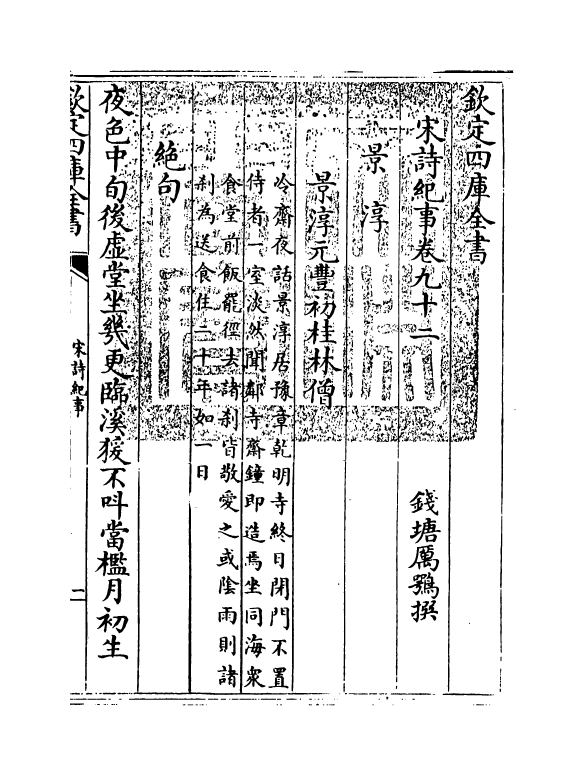 欽定四庫全書
宋詩紀事卷九十二
錢塘厲鶚撰
景淳
景淳元豐初桂林僧
冷齋夜話景淳居豫章乾明寺終日閉門不置
侍者一室淡然聞鄰寺齋鐘即造焉坐同海衆
食堂前飯罷徑去諸刹皆敬愛之或陰雨則諸
刹為送食住二十年如一日
絶句
夜色中旬後虛堂坐幾更臨溪猨不叫當檻月初生
欽定四庫全書
宋詩紀事
二